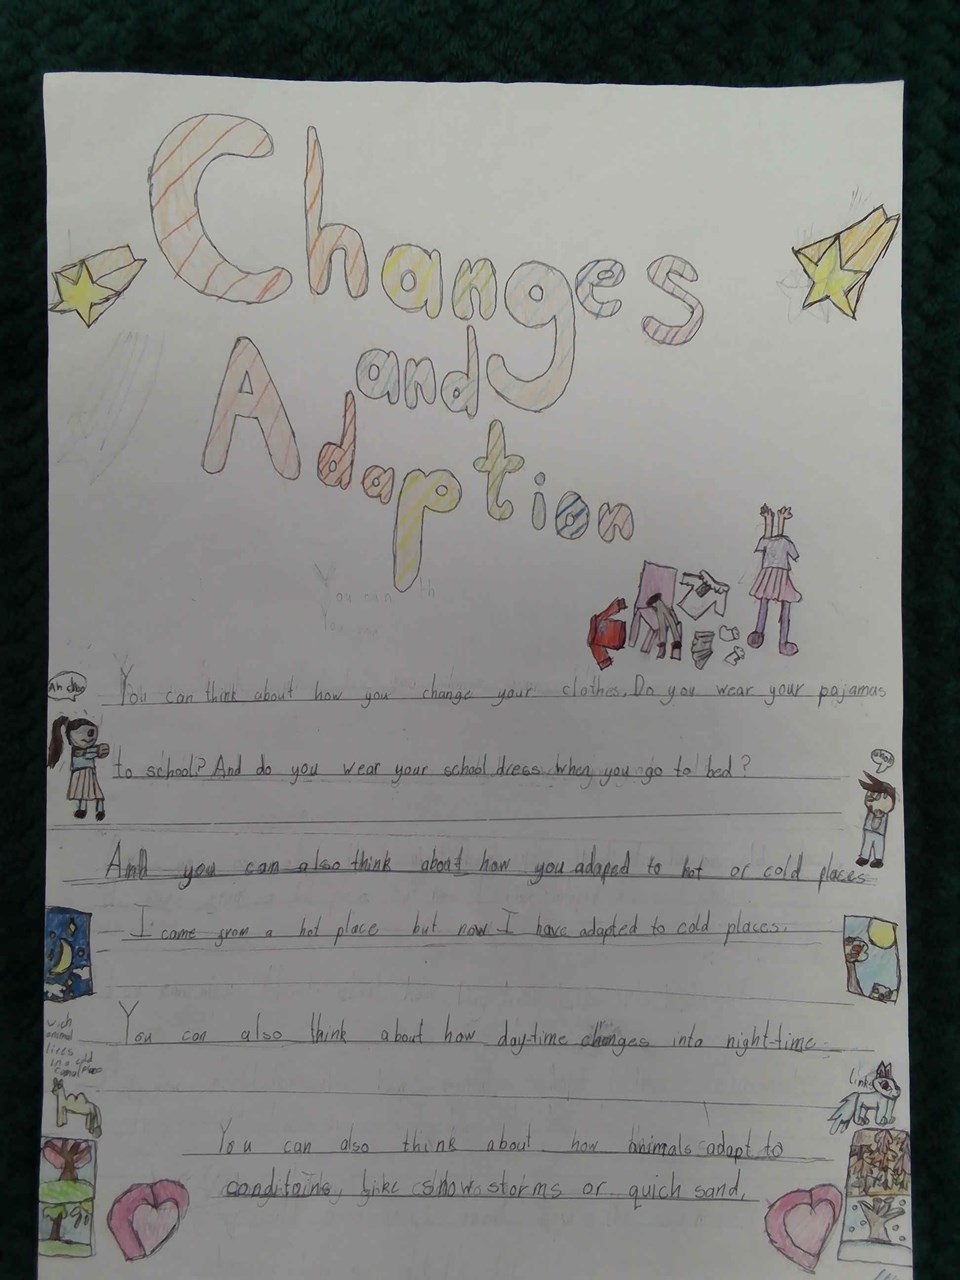 Changes
and
Adaption
You can think about how you change your clothes. Do you wear your pajamas
to school? And do you wear your school dress when you go to bed?
And you can also think about how you adaped to hot or cold places
I came from a hot place but now I have adapted to cold places.
You can also think about how day-time changes into night-time
wich
animal
lives
in a cold
place
camel
link
You can also think about how animals adapt to
conditoins like snow storms or quich sand.